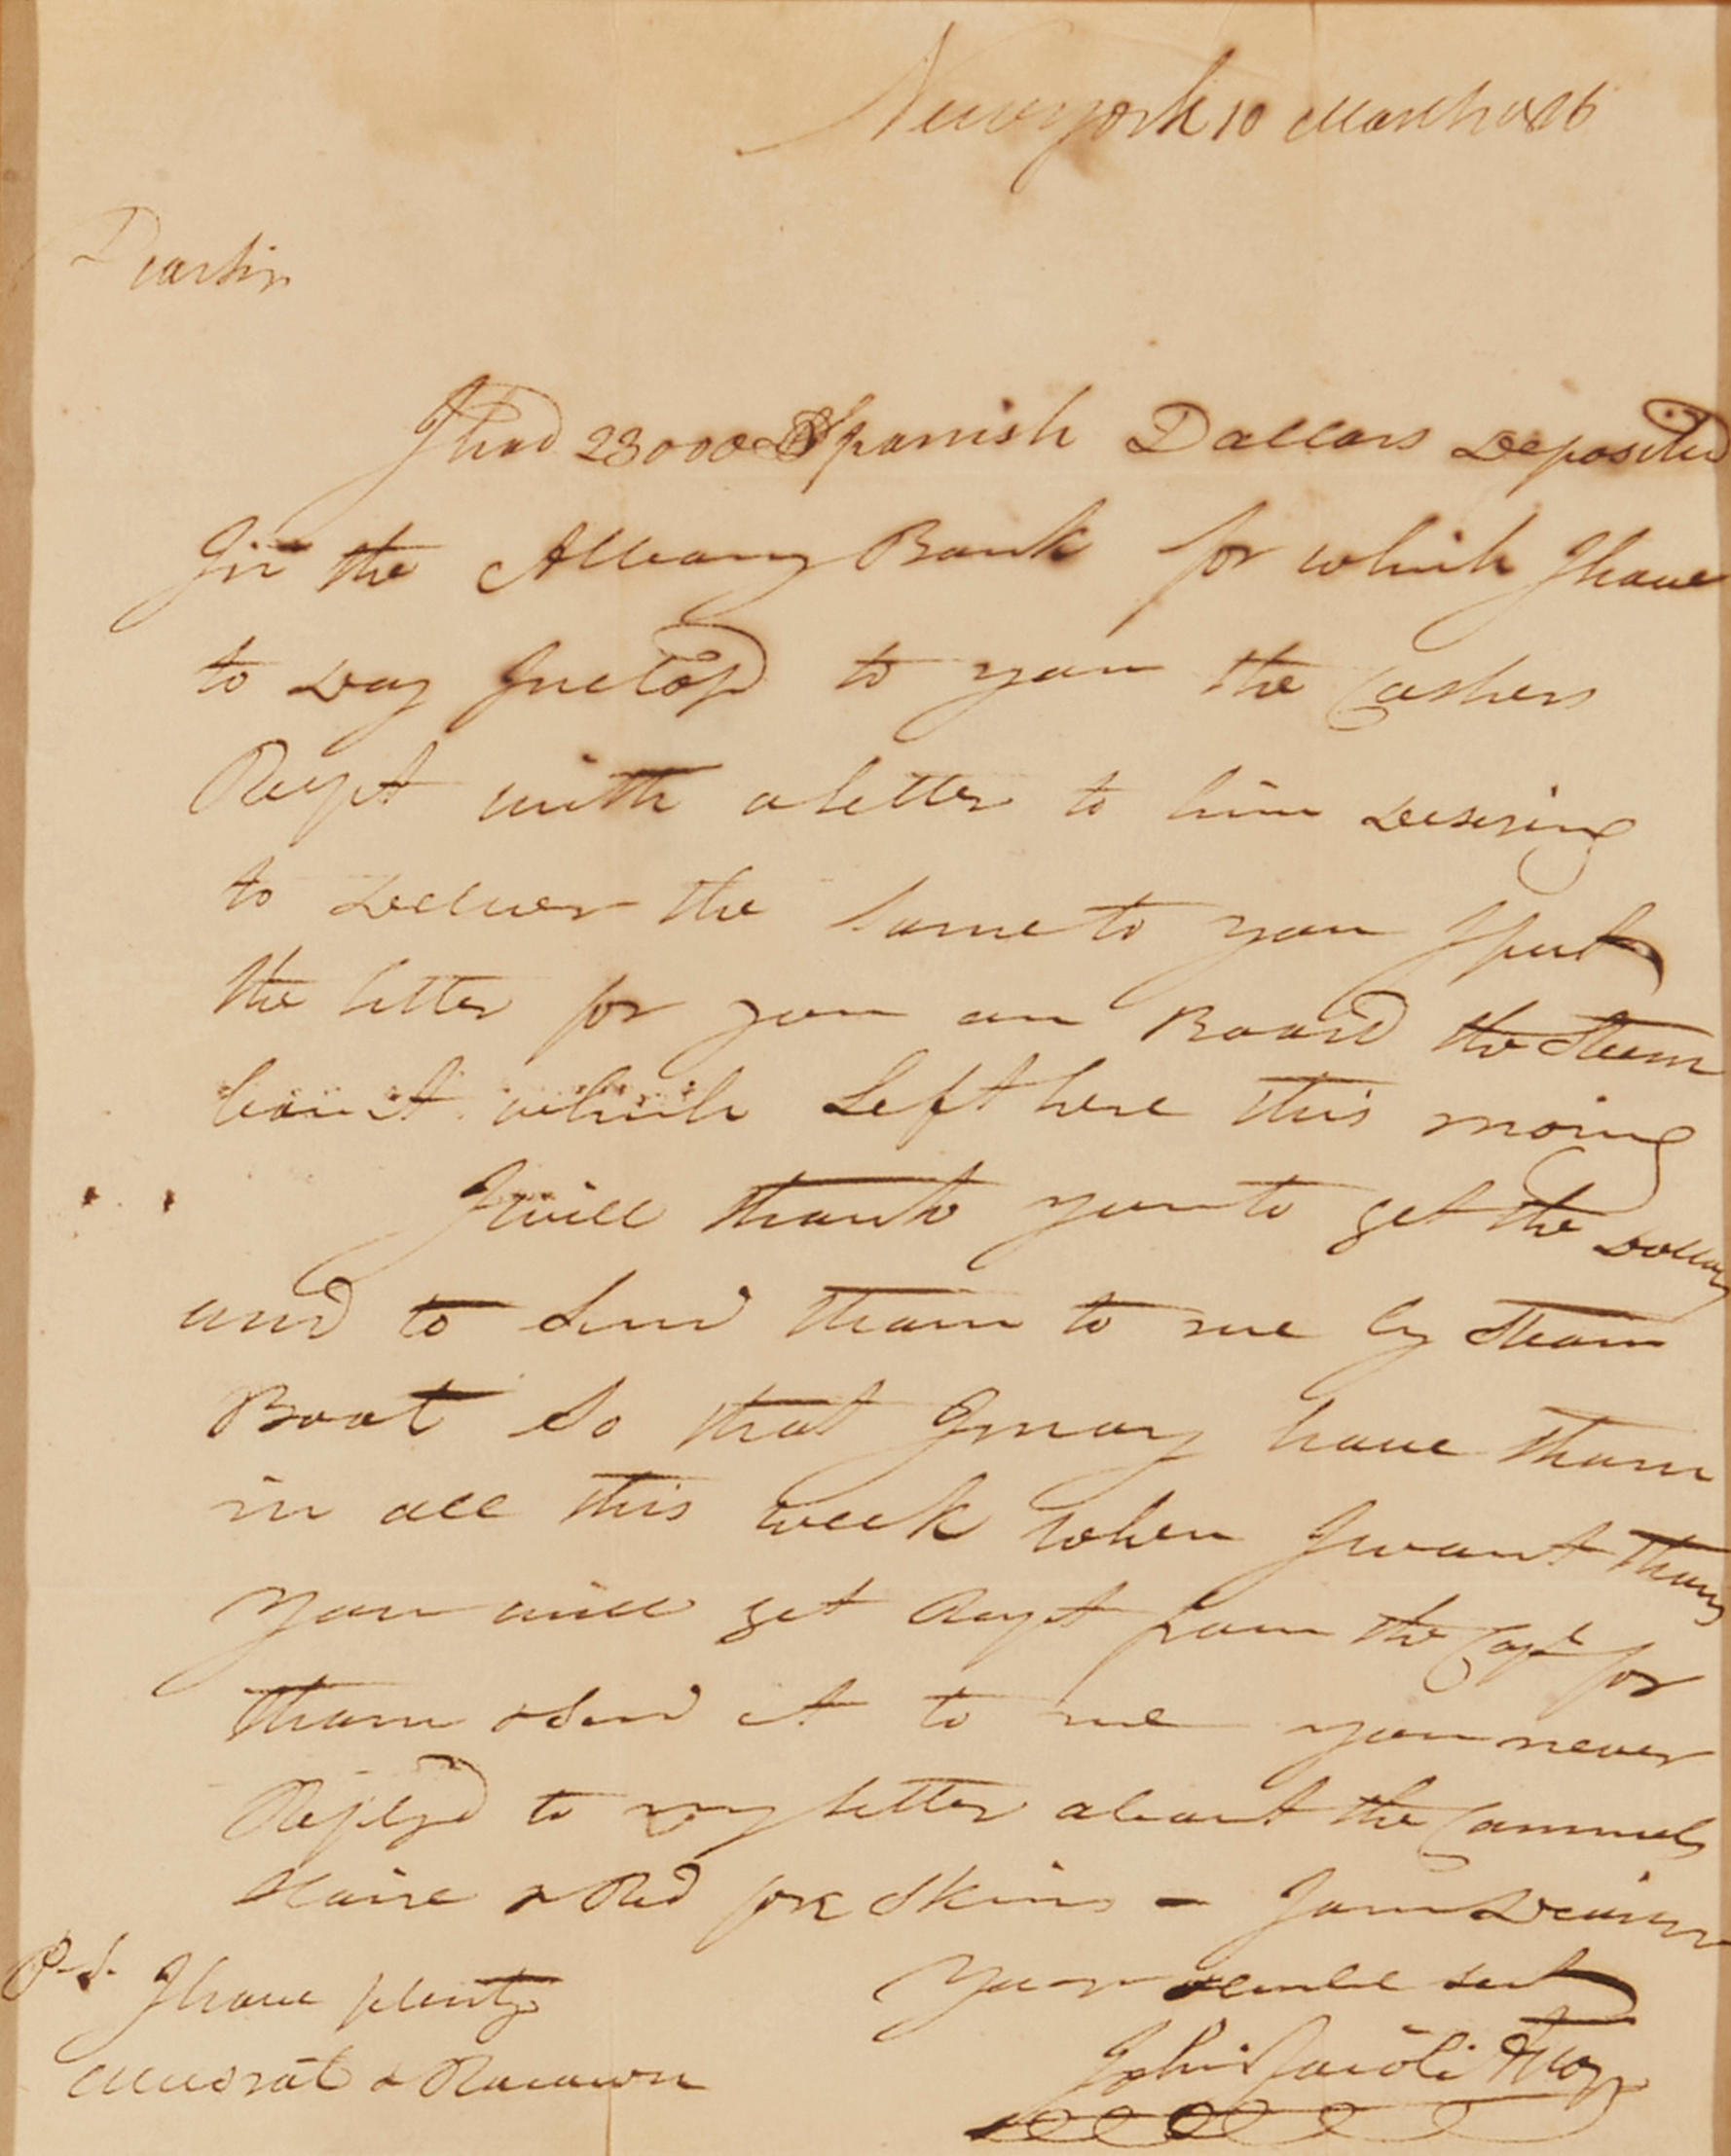 New york 10 March 1816
Dear sir
I had 23000 Spanish Dollars Deposited
In the Albany Bank for which I have
to Day Inclosd to you the Cashers
Recpt with a letter to him Desiring
to Deliver the Same to you I put
the letter for you on Board the Steem
boat which Left here this moring
I will thank you to get the Dollars
and to Send tham to me by Steam
Boat So that I may have tham
in all this week when I want tham
You will get Recpt from the Capt for
tham & Send it to me you never
Replyd to my letter about the Cammels
Haire & Red fox Skins – I am Dear sir
Your Humble Sert
John Jacob Astor
P.S. I have plenty
Muskrat & Racawn